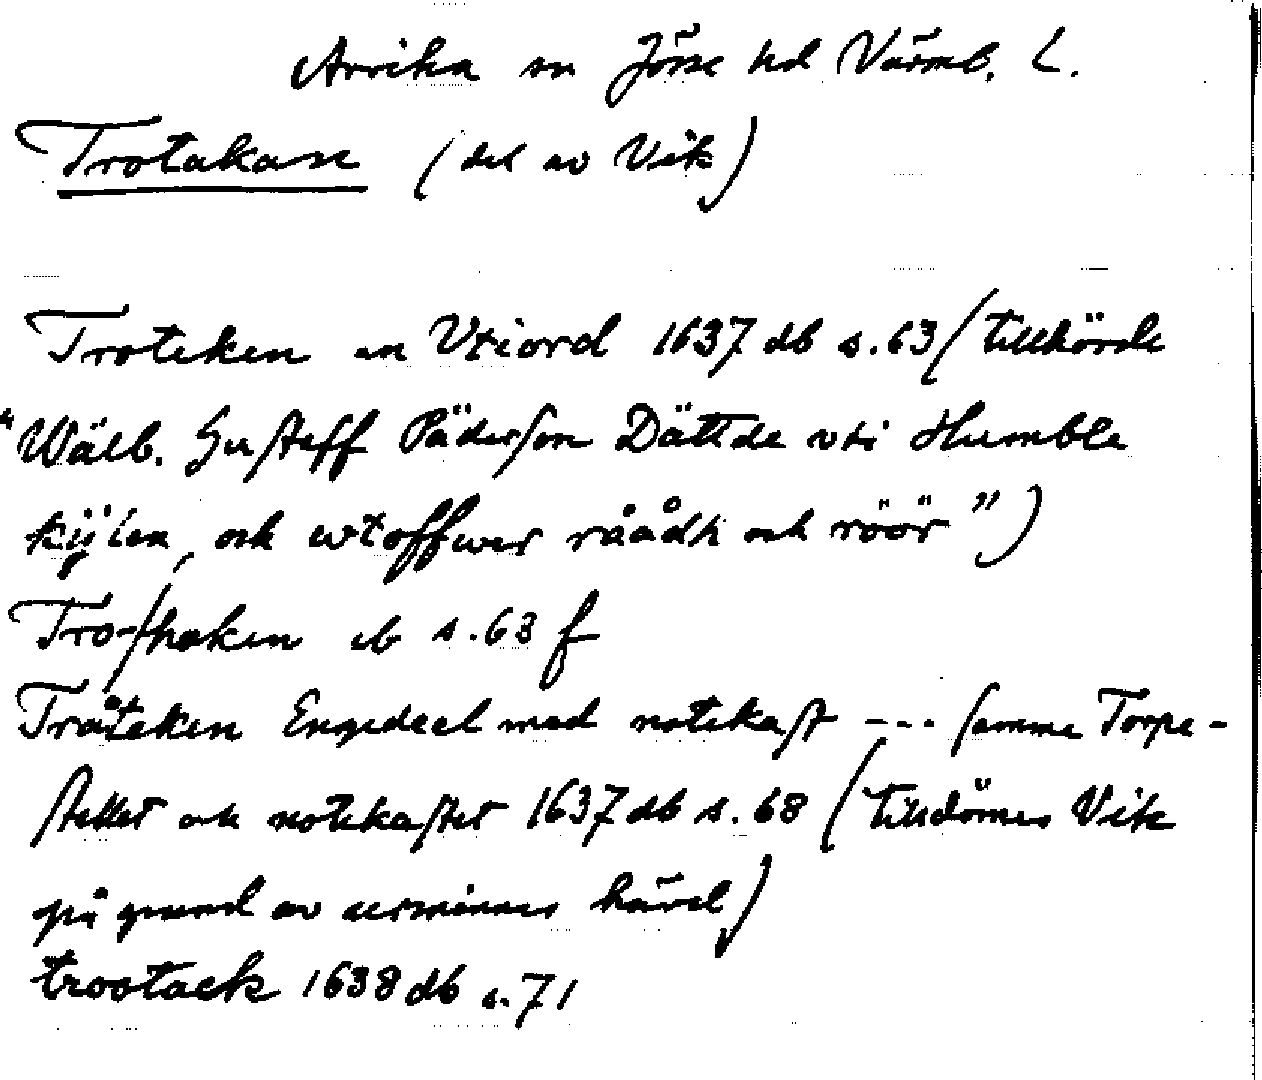 Arvika sn Jösse hd Värml. L.
Trotakan (del av Vik)
Troteken en Vtiord 1637 db s. 63 (tillhörde
"Wälb. Gustaff Päderson Dättde vti Humble
kijlen, och wtoffwer råådh och röör")
Tro-shaken ib s. 63 f
Tråteken Engedeel med notekast --- samme Torpe-
stellet och notekastet 1637 db s. 68 (tilldömes Vik
på grund av urminnes hävd)
trootack 1638 db s. 71